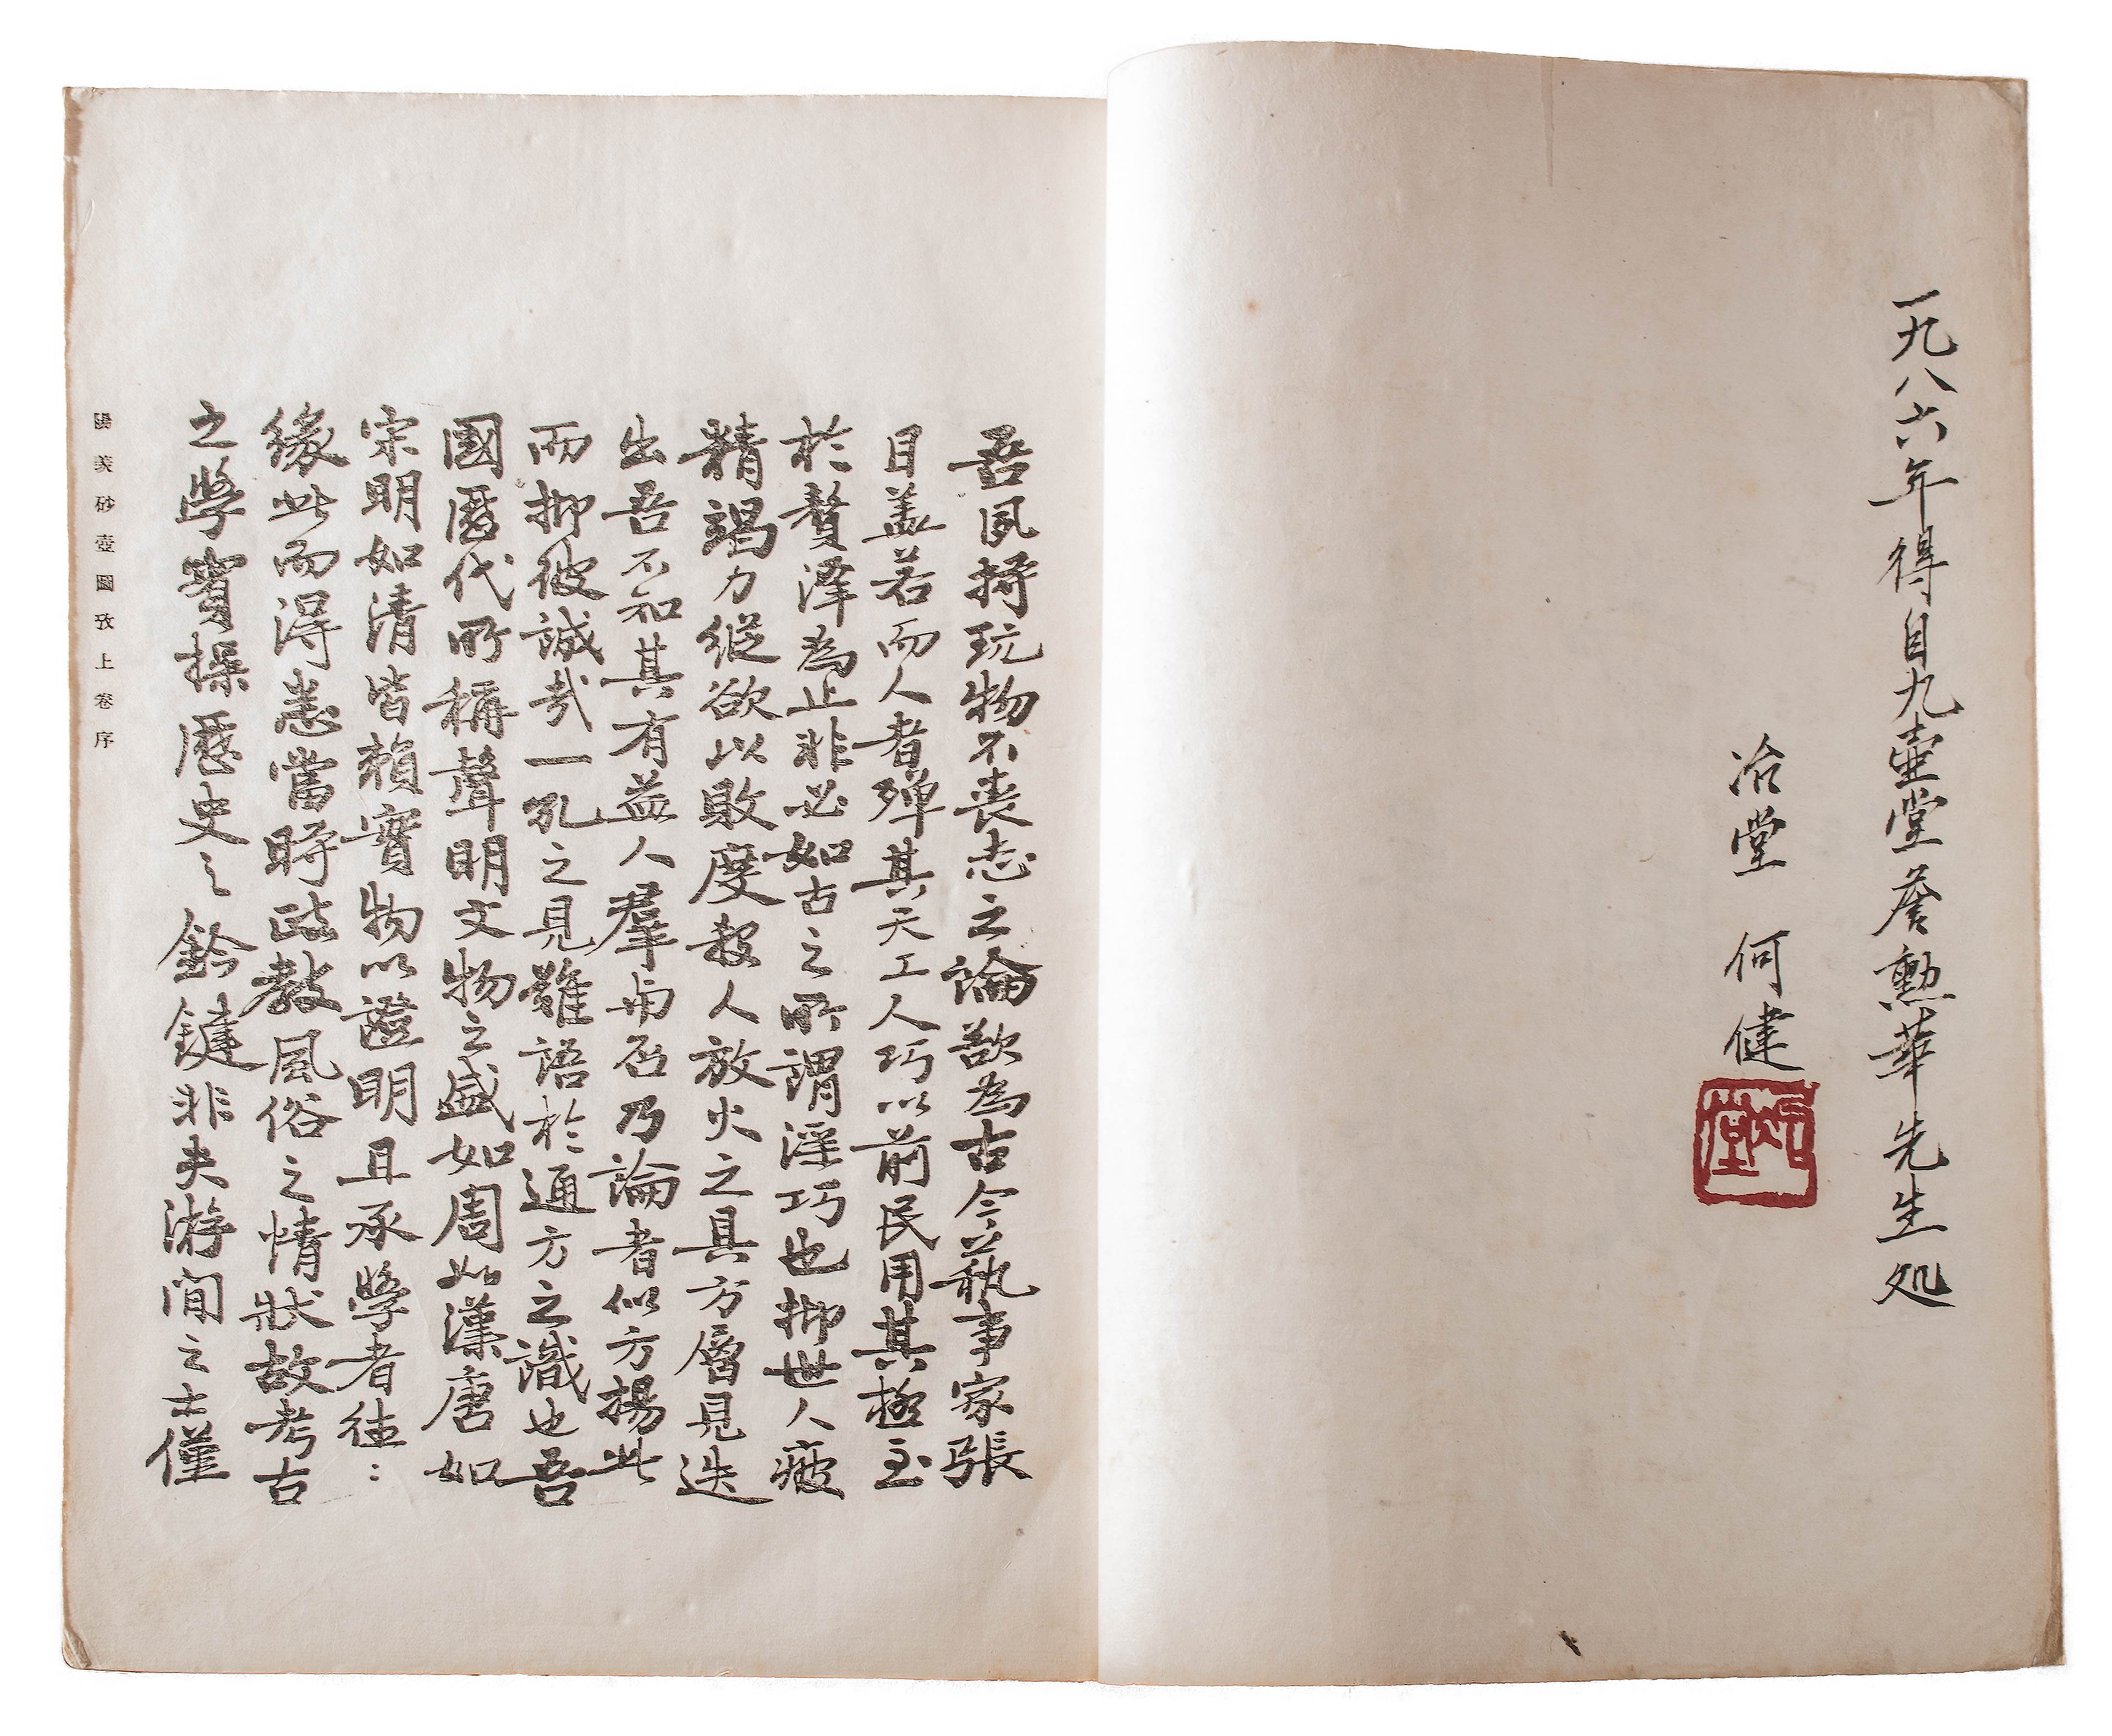 一九八六年得自九壺堂詹勲華先生処
冶堂 何健
冶堂
吾夙持玩物不喪志之論欲為古今藝事家張
目蓋若而人者殫其天工人巧以前民用其極至
於贅澤為止非必如古之所謂淫巧也抑世人疲
精竭力縱欲以敗度殺人放火之具方層見迭
出吾不知其有益人羣與否乃論者似方揚此
而抑彼誠哉一孔之見難語於通方之識也吾
國歷代所稱聲明文物之盛如周如漢唐如
宋明如清皆賴實物以證明且承學者往：
緣此而得悉當時政教風俗之情狀故考古
之學實操歷史之鈐鍵非夫游閒之士僅
陽羨砂壺圖攷上卷序